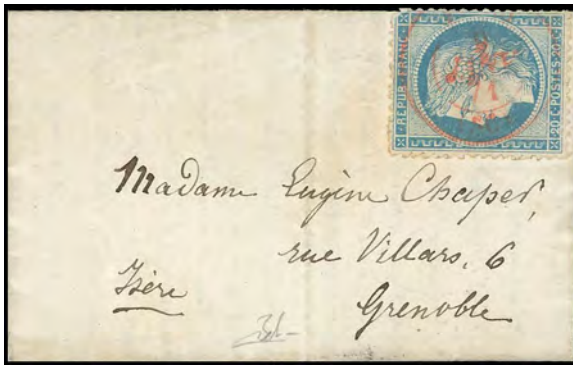 REPUB. FRANC.
20 C POSTES 20 C
Madame Eugène Chaper,
rue Villars, 6
Isère
Grenoble